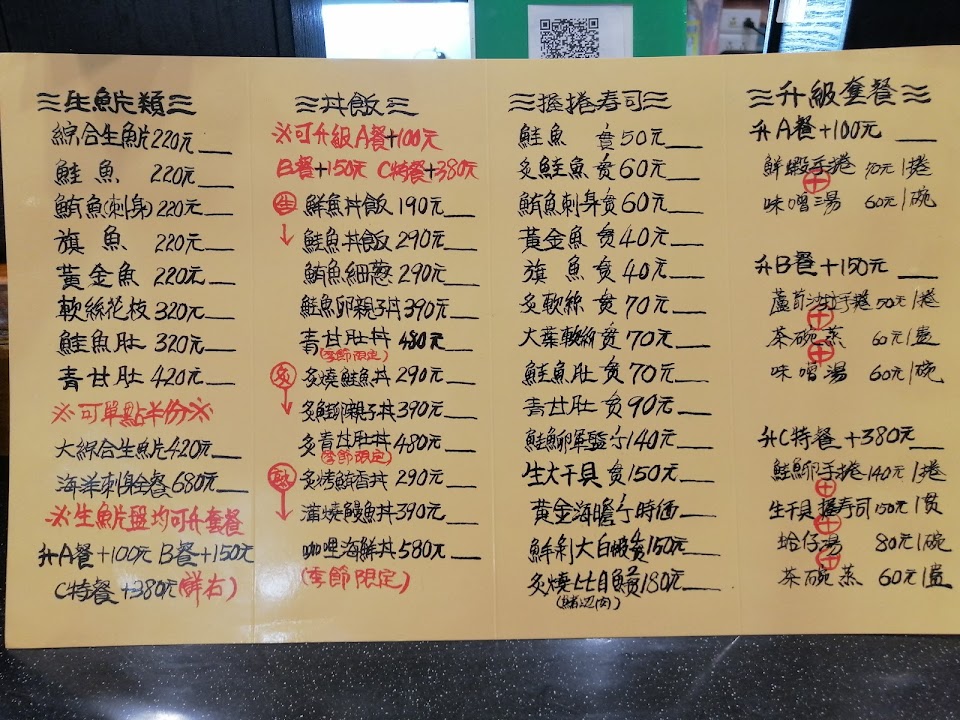 生魚片類
綜合生魚片220元
鮭魚 220元
鮪魚(刺身)220元
旗魚 220元
黃金魚 220元
軟絲花枝320元
鮭魚肚 320元
青甘肚 420元
※可單點半份※
大綜合生魚片420元
海洋刺身全餐680元
※生魚片盤均可升套餐
升A餐+100元 B餐+150元
C特餐+380元(鮮右)
丼飯
※可升級A餐+100元
B餐+150元 C特餐+380元
生 鮮魚丼飯190元
鮭魚丼飯290元
鮪魚細蔥290元
鮭魚卵親子丼390元
青甘肚丼 480元
(季節限定)
炙 炙燒鮭魚丼290元
炙鮭卵親子丼390元
炙青甘肚丼480元
(季節限定)
熟 炙烤鯖香丼 290元
蒲燒鰻魚丼390元
咖哩海鮮丼580元
(季節限定)
握捲寿司
鮭魚 貫50元
炙鮭魚 貫60元
鮪魚刺身貫60元
黃金魚 貫40元
旗魚 貫40元
炙軟絲 貫70元
大葉軟絲貫70元
鮭魚肚 貫70元
青甘肚 貫90元
鮭魚卵軍盤个140元
生大干貝 貫150元
黃金海膽个時価
鮮剝大白蝦貫150元
炙燒比目鰭貫180元
(鰭辺肉)
升級套餐
升A餐+100元
鮮蝦手捲 70元/捲
+
味噌湯 60元/碗
升B餐+150元
蘆筍沙拉手捲50元/捲
+
茶碗蒸 60元/盅
+
味噌湯 60元/碗
升C特餐+380元
鮭魚卵手捲140元/捲
+
生干貝握寿司150元/貫
+
蛤仔湯 80元/碗
+
茶碗蒸 60元/盅